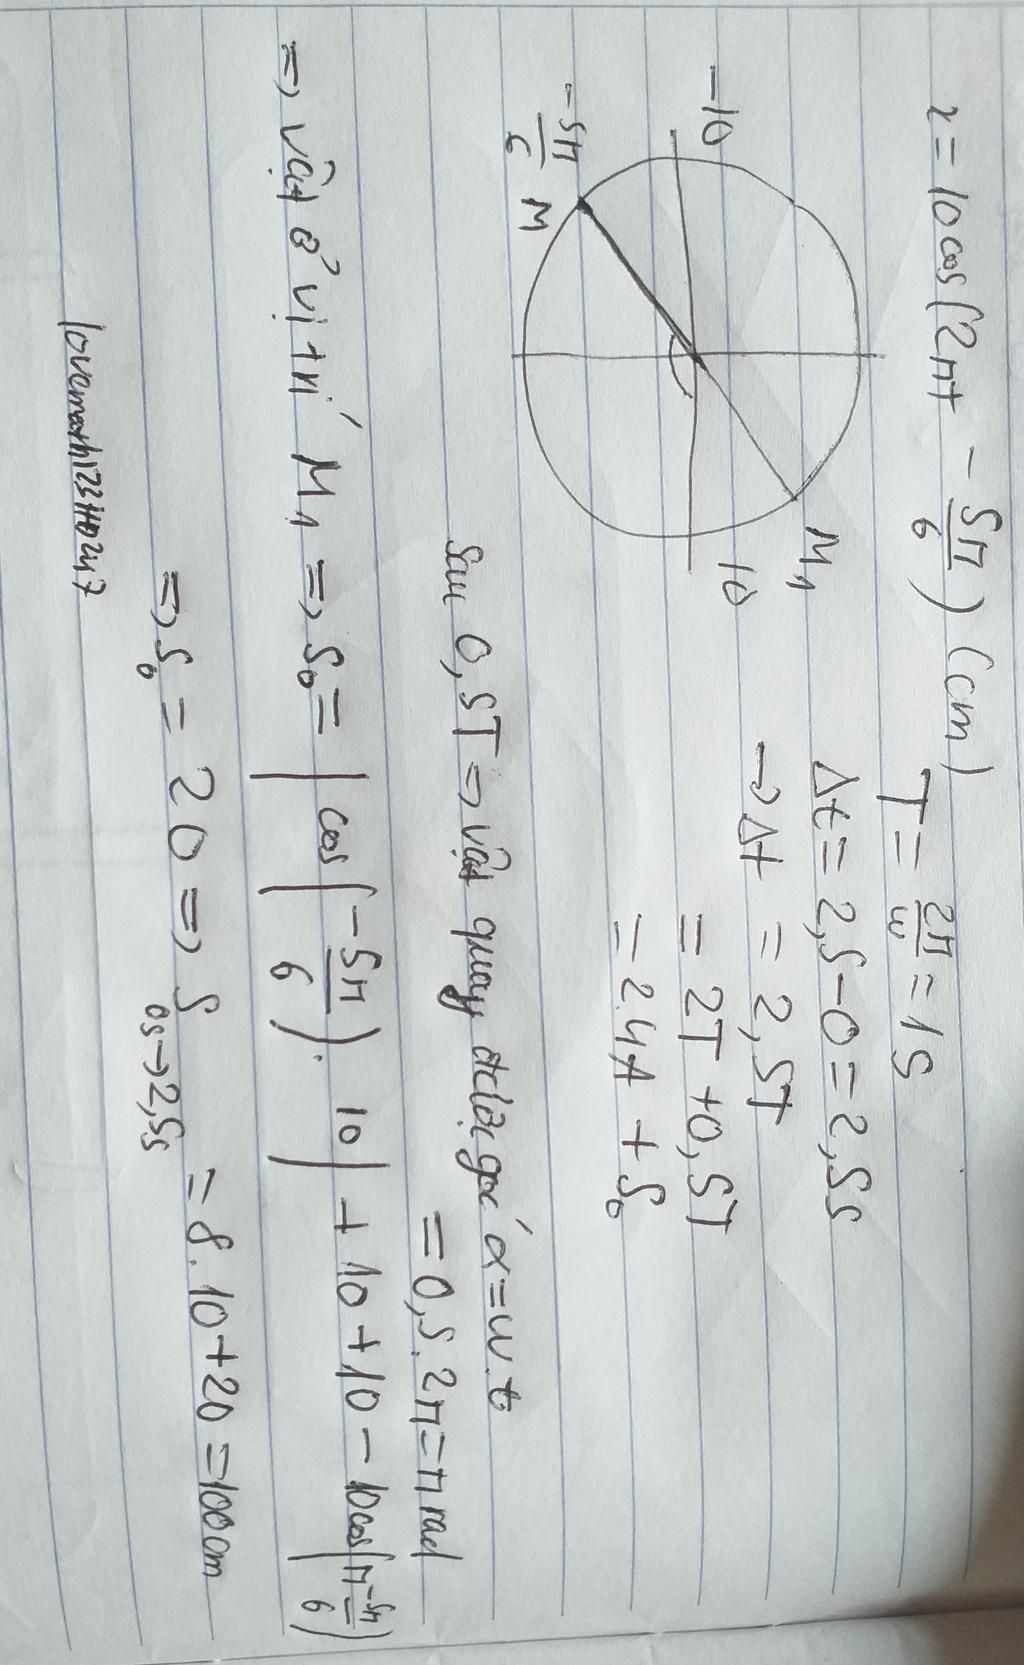 x = 10cos(2πt - 5π/6) (cm)
T = 2π/ω = 1s
Δt = 2,5-0 = 2,5s
→ Δt = 2,5T
= 2T + 0,5T
= 2.4A + S₀
-10
10
M₁
-5π/6
M
Sau 0,5T => vật quay được góc α = ω.t
= 0,5.2π = π rad
=> vật ở vị trí M₁ => S₀ = |cos(-5π/6).10| + 10 + 10 - 10cos(π-5π/6)
=> S₀ = 20 => S 0s→2,5s = 8.10+20 = 100cm